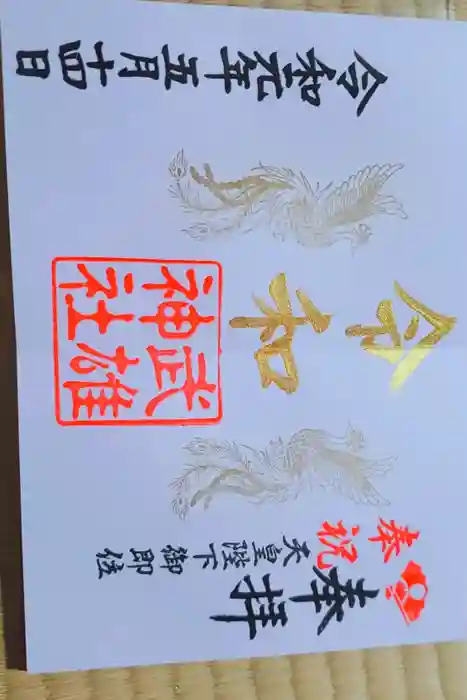 奉拝
奉祝
天皇陛下御即位
令和
武雄
神社
令和元年五月十四日